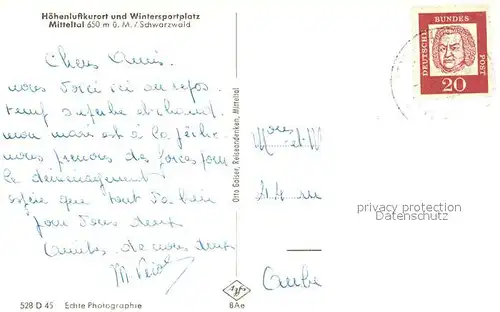 Höhenluftkurort und Wintersportplatz
Mitteltal 650 m ü. M. / Schwarzwald
Chers Amis.
nous voici ici au repos
temps superbe et chaud.
mon mari est à la pêche
nous prenons des forces pour
le déménagement
espère que tout va bien
pour vous deux
Amitiés de nous deux
M.
528 D 45 Echte Photographie
Otto Gaiser, Reiseandenken, Mitteltal
Agfa
BAe
DEUTSCHE BUNDESPOST
20
privacy protection
Datenschutz